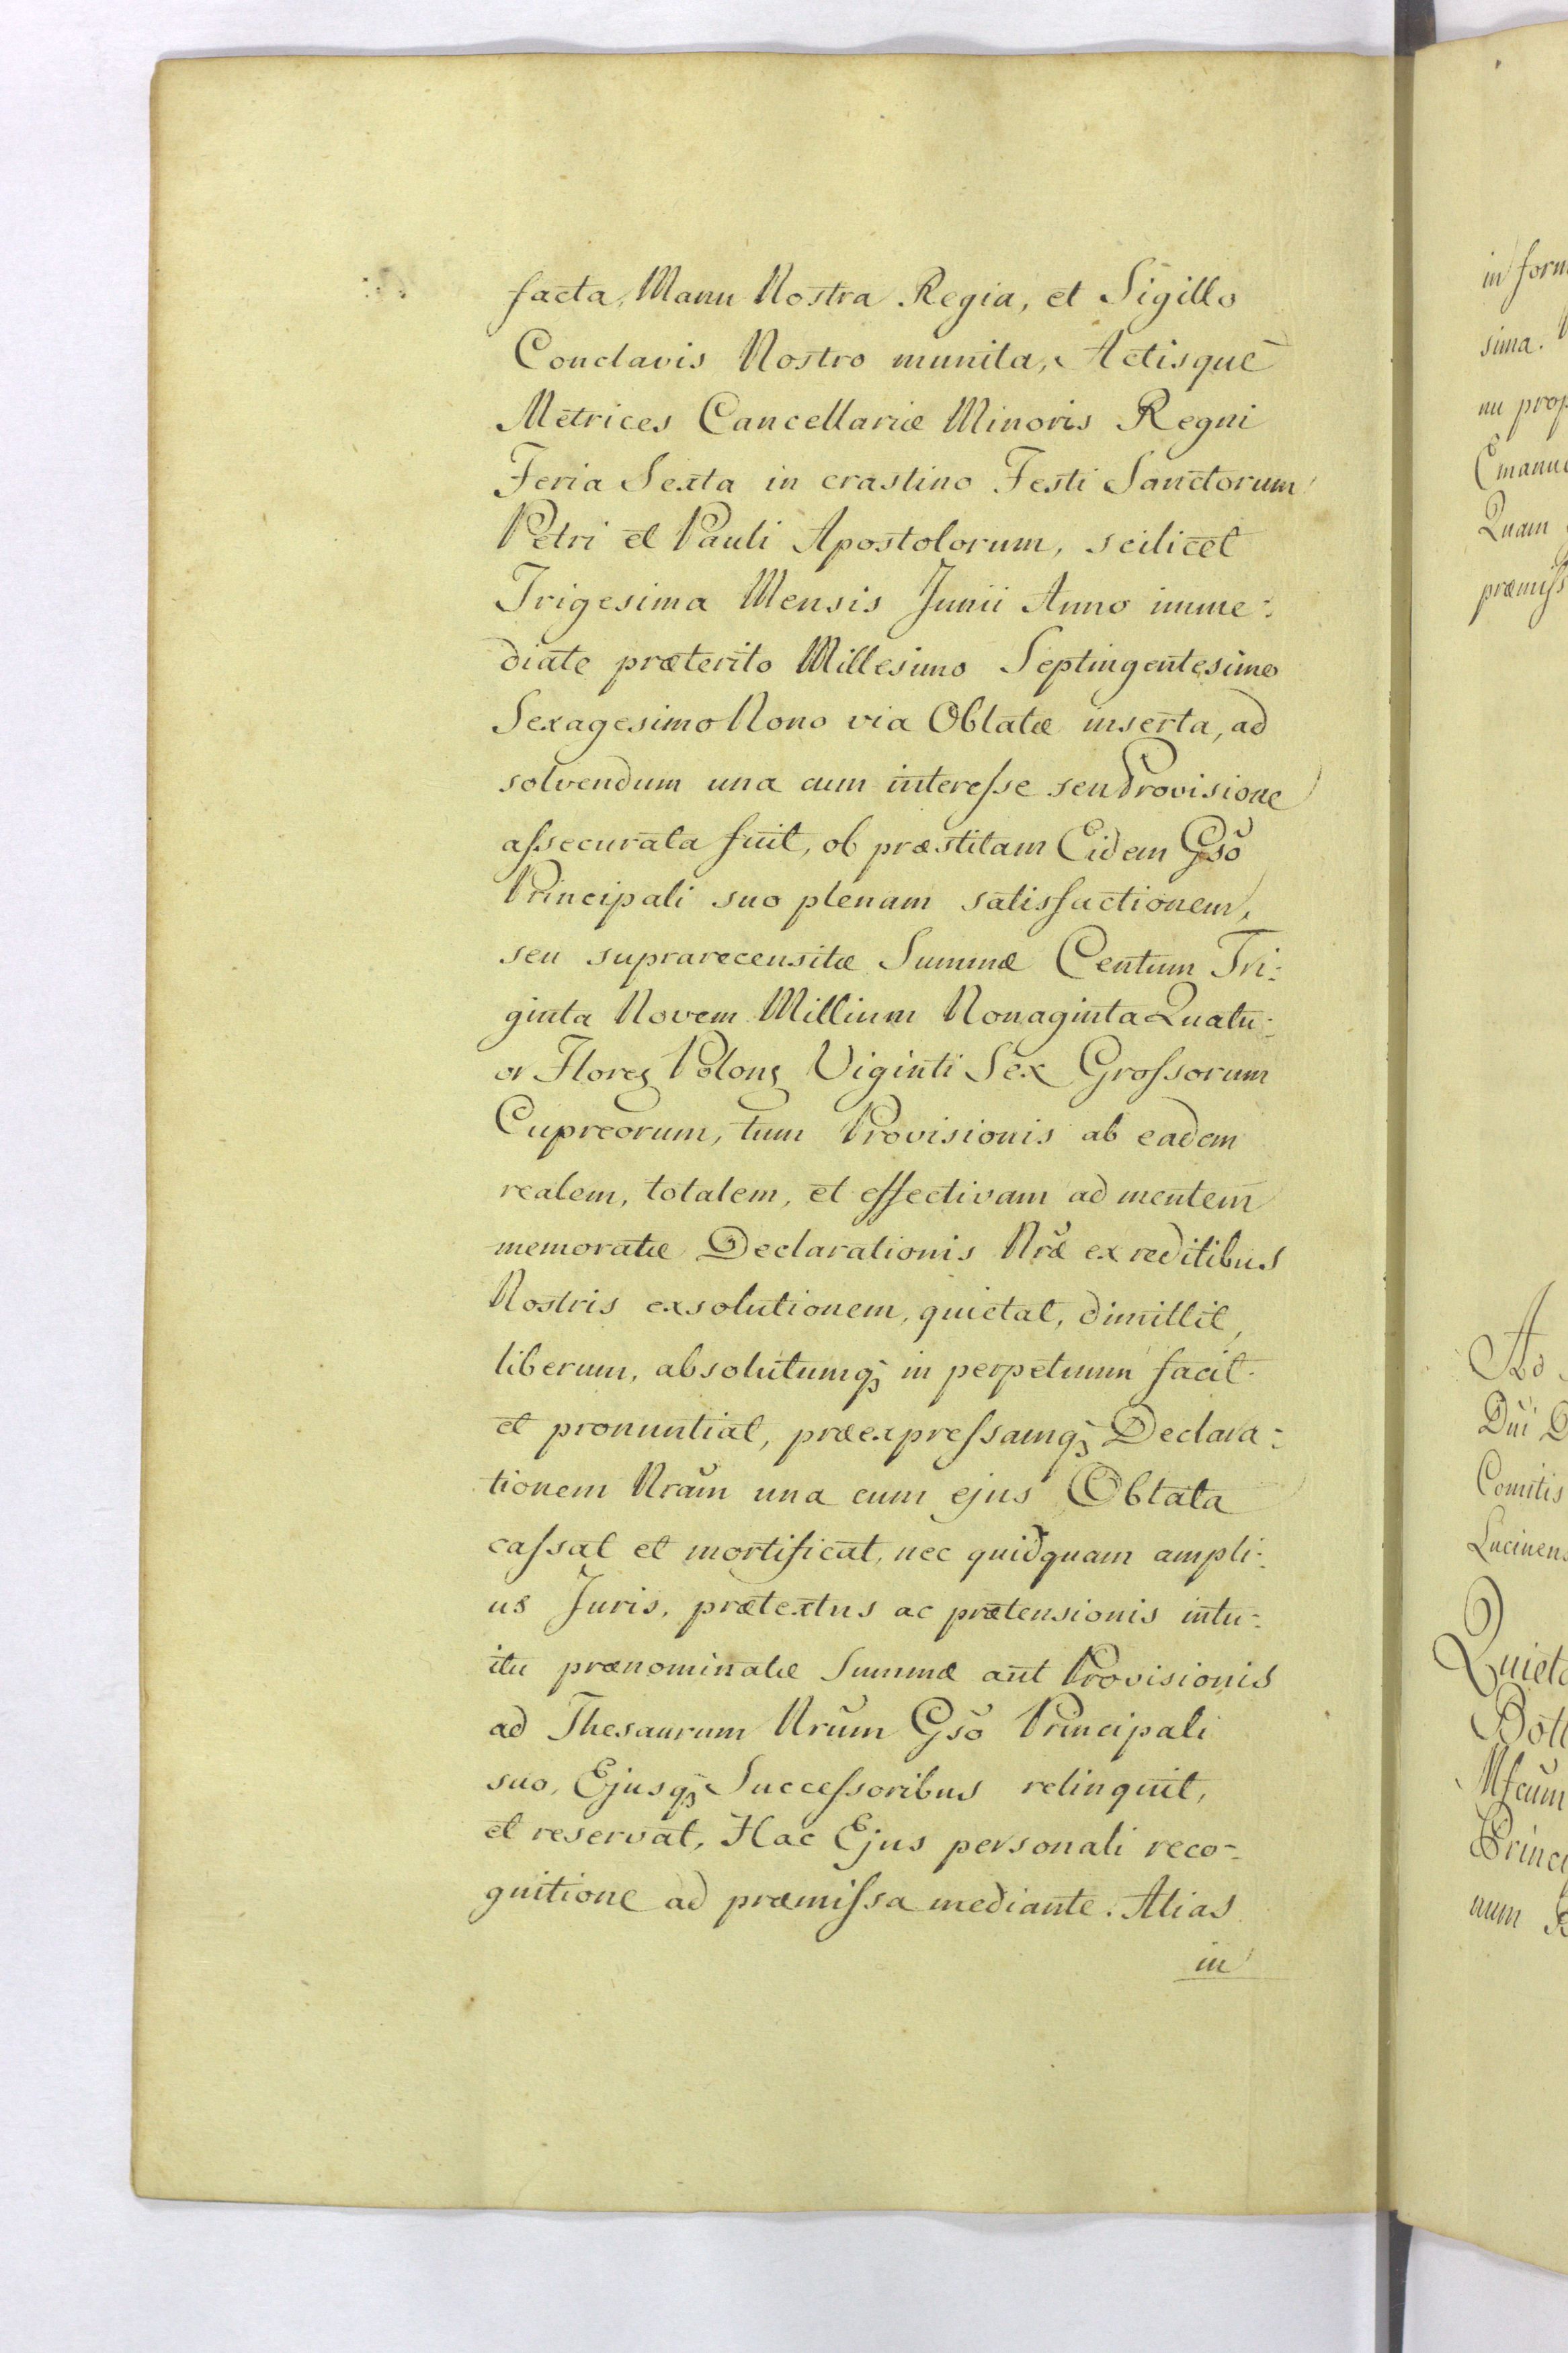 facta, Manu Nostra Regia, et Sigillo
Conclavis Nostro munita, Actisque
Metrices Cancellariæ Minoris Regni
Feria Sexta in crastino Festi Sanctorum
Petri et Pauli Apostolorum, scilicet
Trigesima Mensis Junii Anno imme:
diate præterito Millesimo Septingentesimo
Sexagesimo Nono via Oblatæ inserta, ad
solvendum una cum interesse seu Provisione
assecurata fuit, ob præstitam Eidem Gsō
Principali suo plenam satisfactionem,
seu suprarecensitæ Summæ Centum Tri:
ginta Novem Millium Nonaginta Quatu:
or Floreꝝ Polonꝝ Viginti Sex Grossorum
Cupreorum, tum Provisionis ab eadem
realem, totalem, et effectivam ad mentem
memoratæ Declarationis Nr̃æ ex reditibus
Nostris exsolutionem, quietat, dimittit,
liberum, absolutumqꝫ in perpetuum facit
et pronuntiat, præexpressamqꝫ Declara:
tionem Nr̃am una cum ejus Oblata
cassat et mortificat, nec quidquam ampli:
us Juris, prætextus ac prætensionis intu:
itu prænominatæ Summæ aut Provisionis
ad Thesaurum Nr̃um Gsō Principali
suo, Ejusqꝫ Successoribus relinquit,
et reservat, Hac Ejus personali reco:
gnitione ad præmissa mediante. Alias
in
in form
sima.
nu prop
Emanue
Quam
præmiss
Ad
Dn̄i D
Comitis
Lucinens
Quieta
Bott
Mfcum
Princi
num